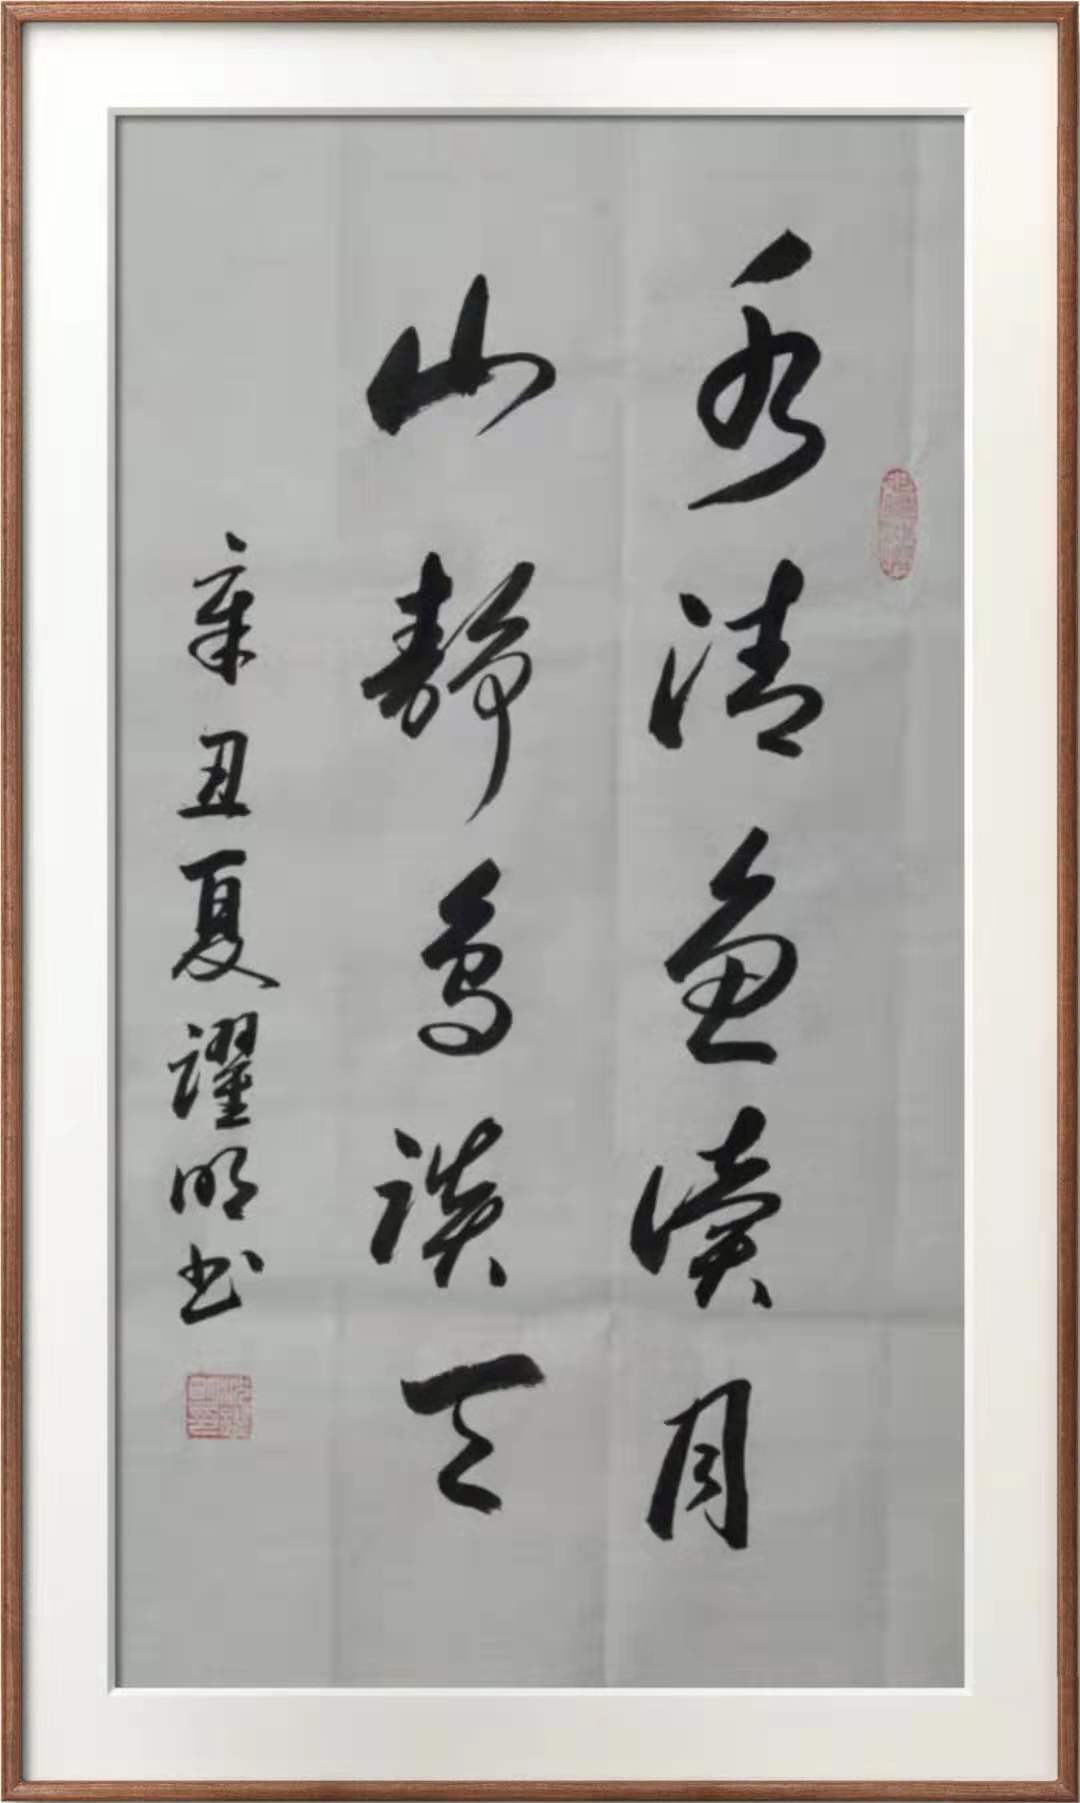 水清鱼讀月
山静鸟谈天
辛丑夏耀明书